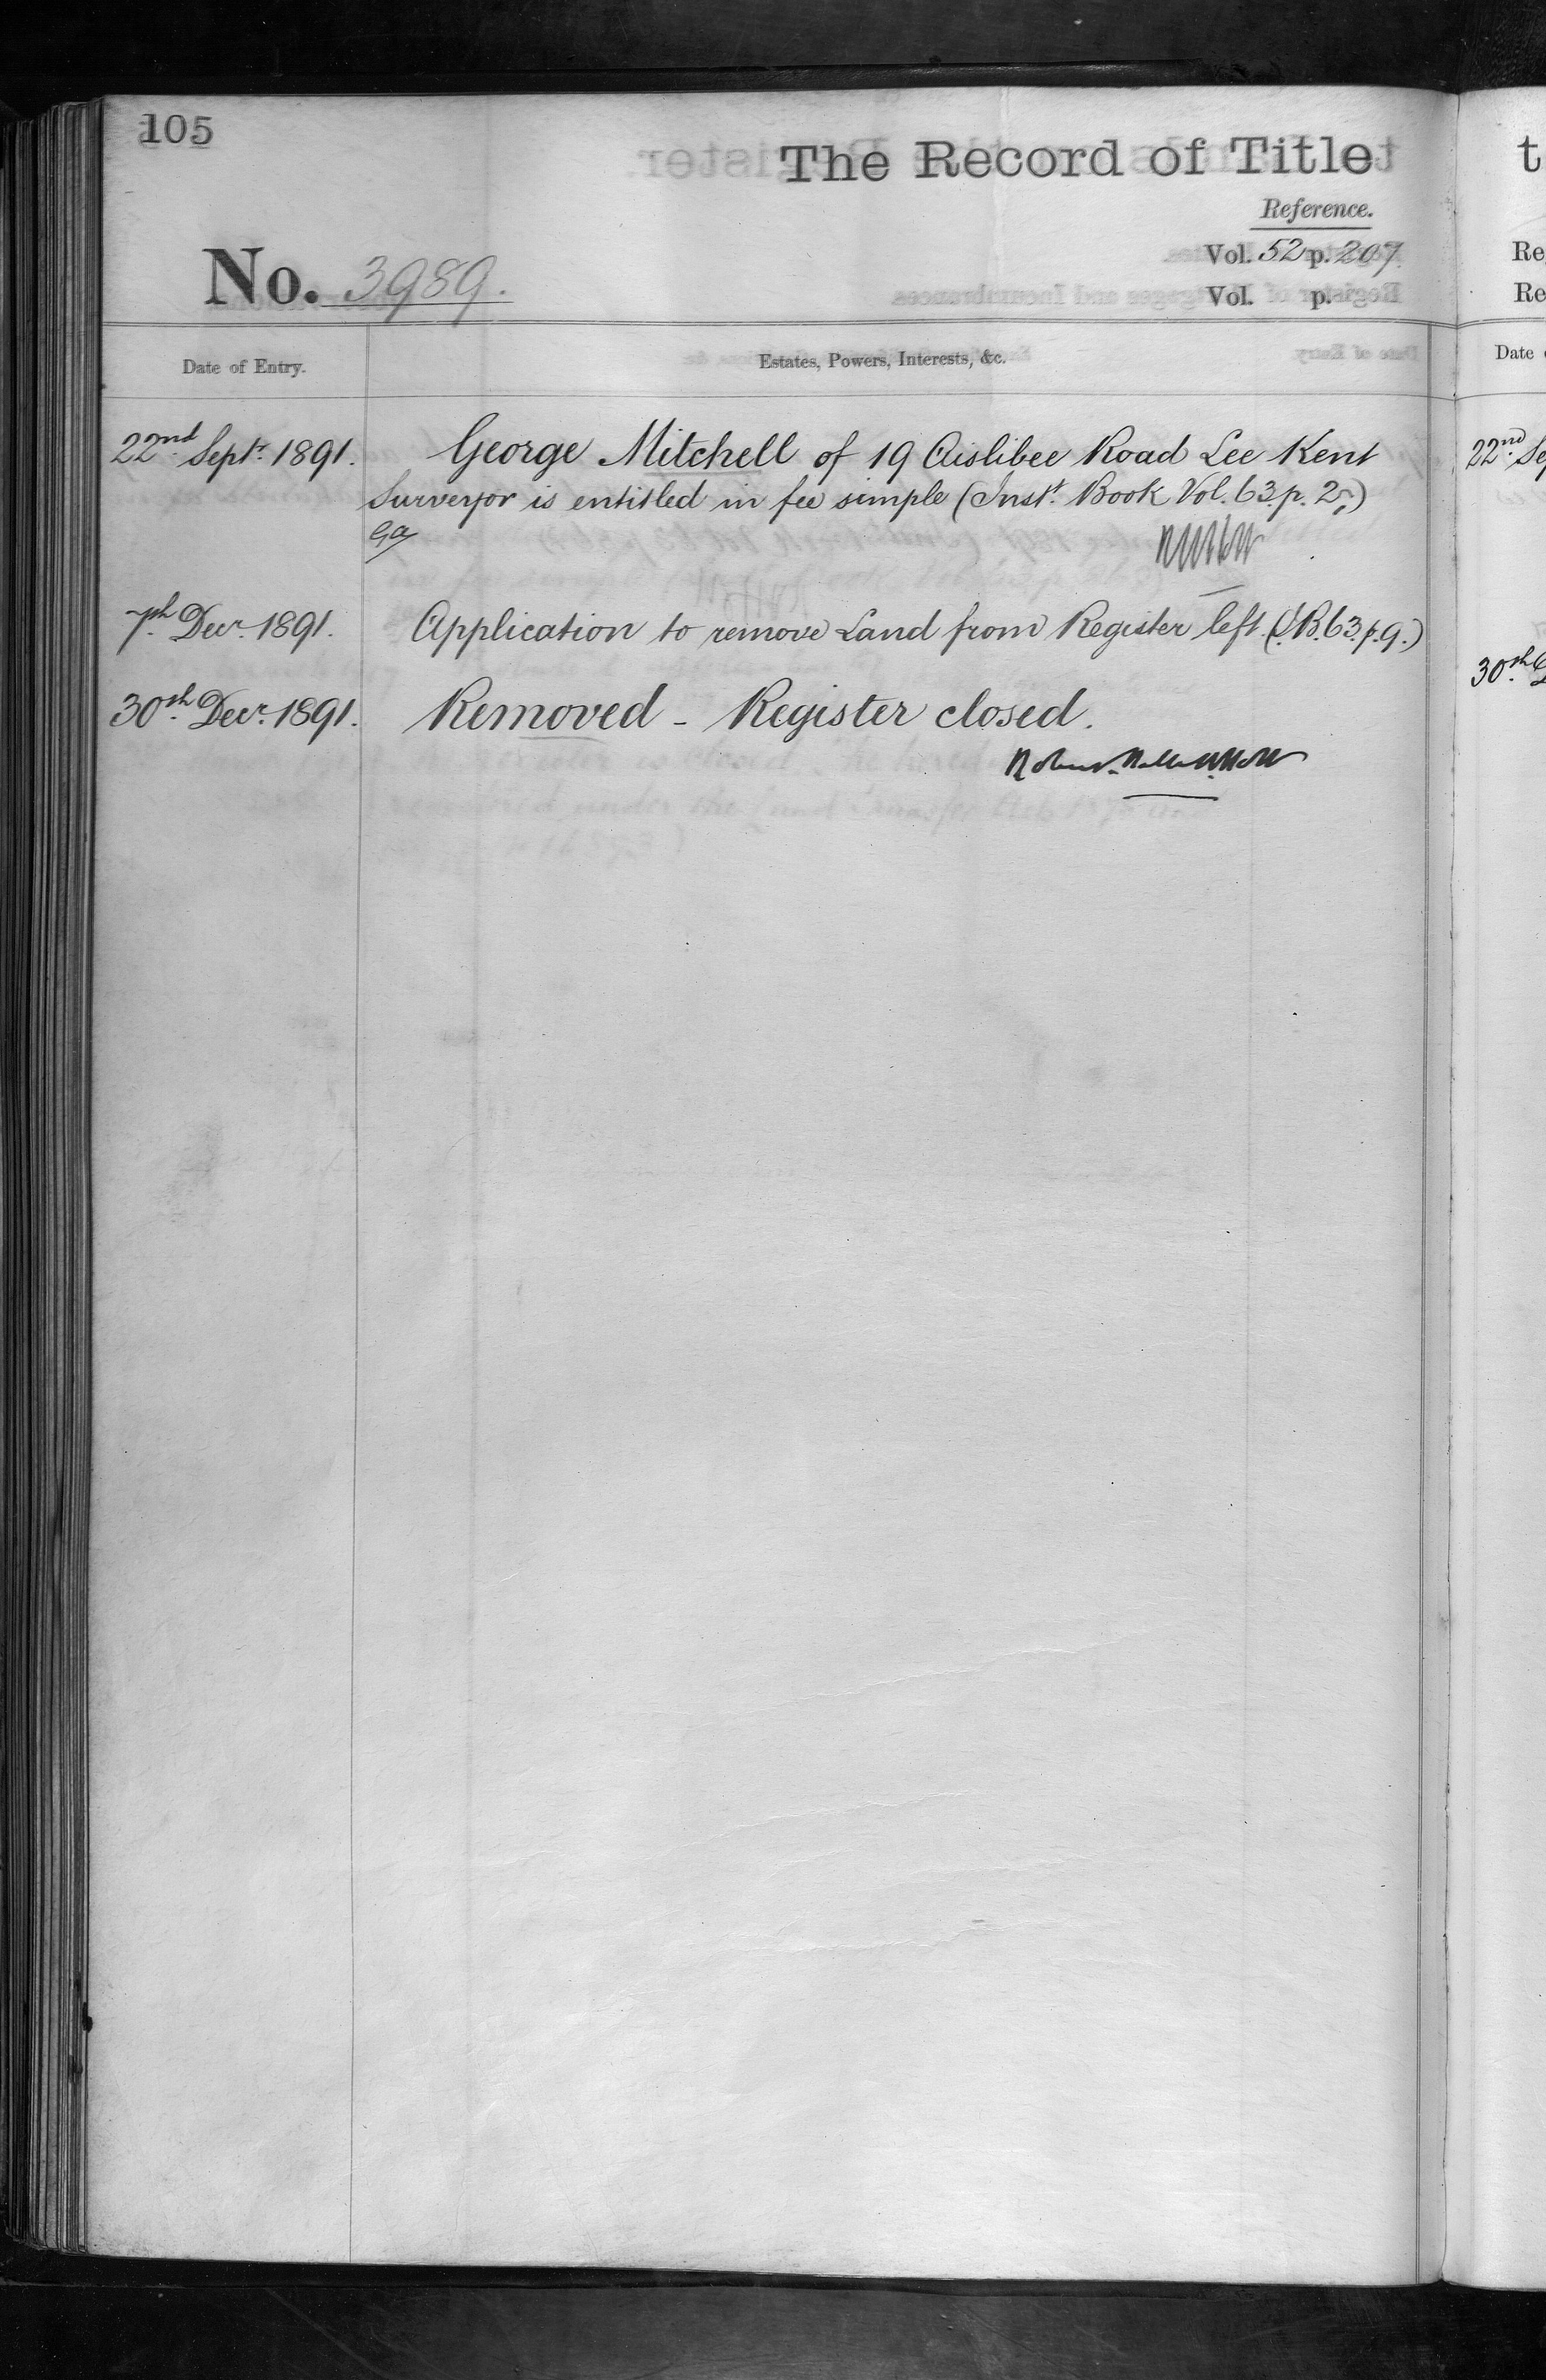 105
The Record of Title
Reference.
Vol. 52 p. 207
No. 3989.
Vol. p.
Date of Entry.
Estates, Powers, Interests, &c.
22nd Sept. 1891. George Mitchell of 19 Aislibee Road Lee Kent
Surveyor is entitled in fee simple (Inst. Book Vol. 63. p. 2,)
7th Decr. 1891. Application to remove Land from Register left. (I.B. 63. p. 9.)
30th Decr. 1891. Removed - Register closed.
t
Re
Re
Date
22nd Se
30th